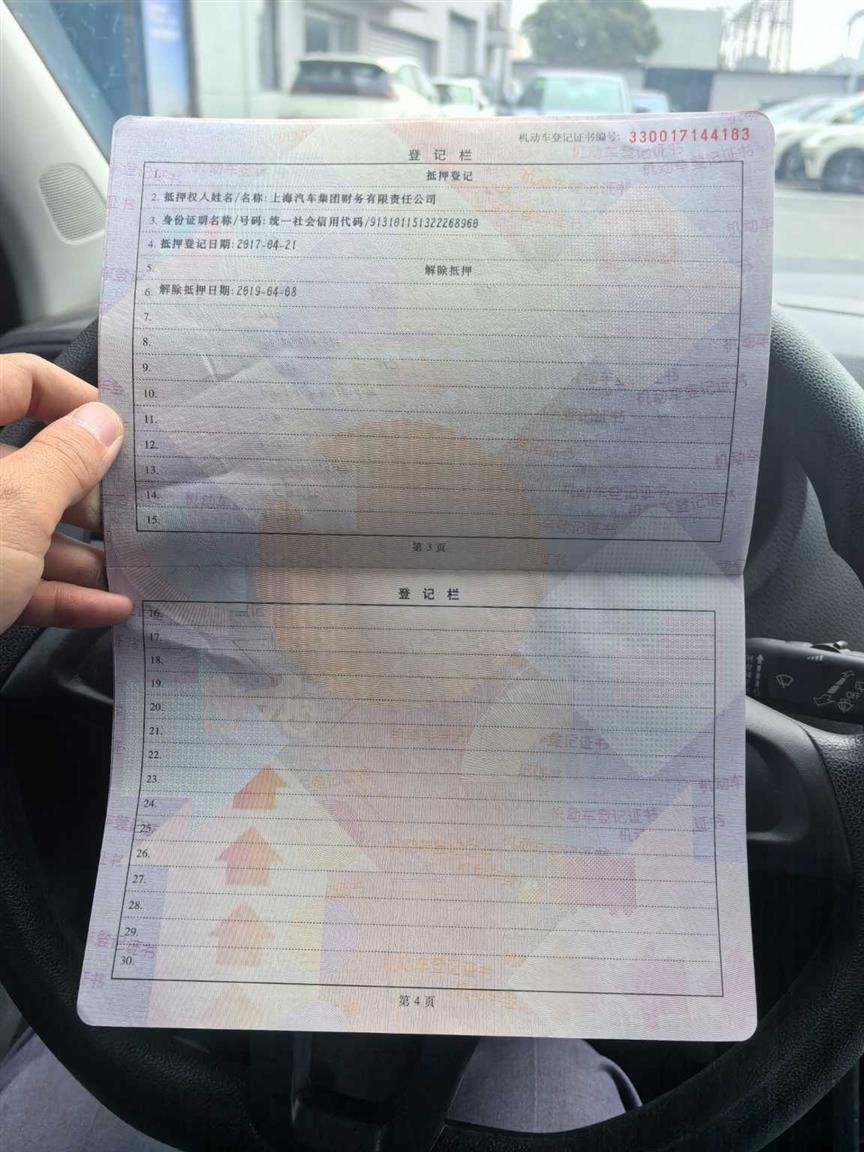 机动车登记证书编号: 330017144183
登 记 栏
1. 抵押登记
2. 抵押权人姓名/名称:上海汽车集团财务有限责任公司
3. 身份证明名称/号码:统一社会信用代码/913101151322268960
4. 抵押登记日期:2017-04-21
5. 解除抵押
6. 解除抵押日期:2019-04-08
7.
8.
9.
10.
11.
12.
13.
14.
15.
第 3 页
登 记 栏
16.
17.
18.
19.
20.
21.
22.
23.
24.
25.
26.
27.
28.
29.
30.
第 4 页